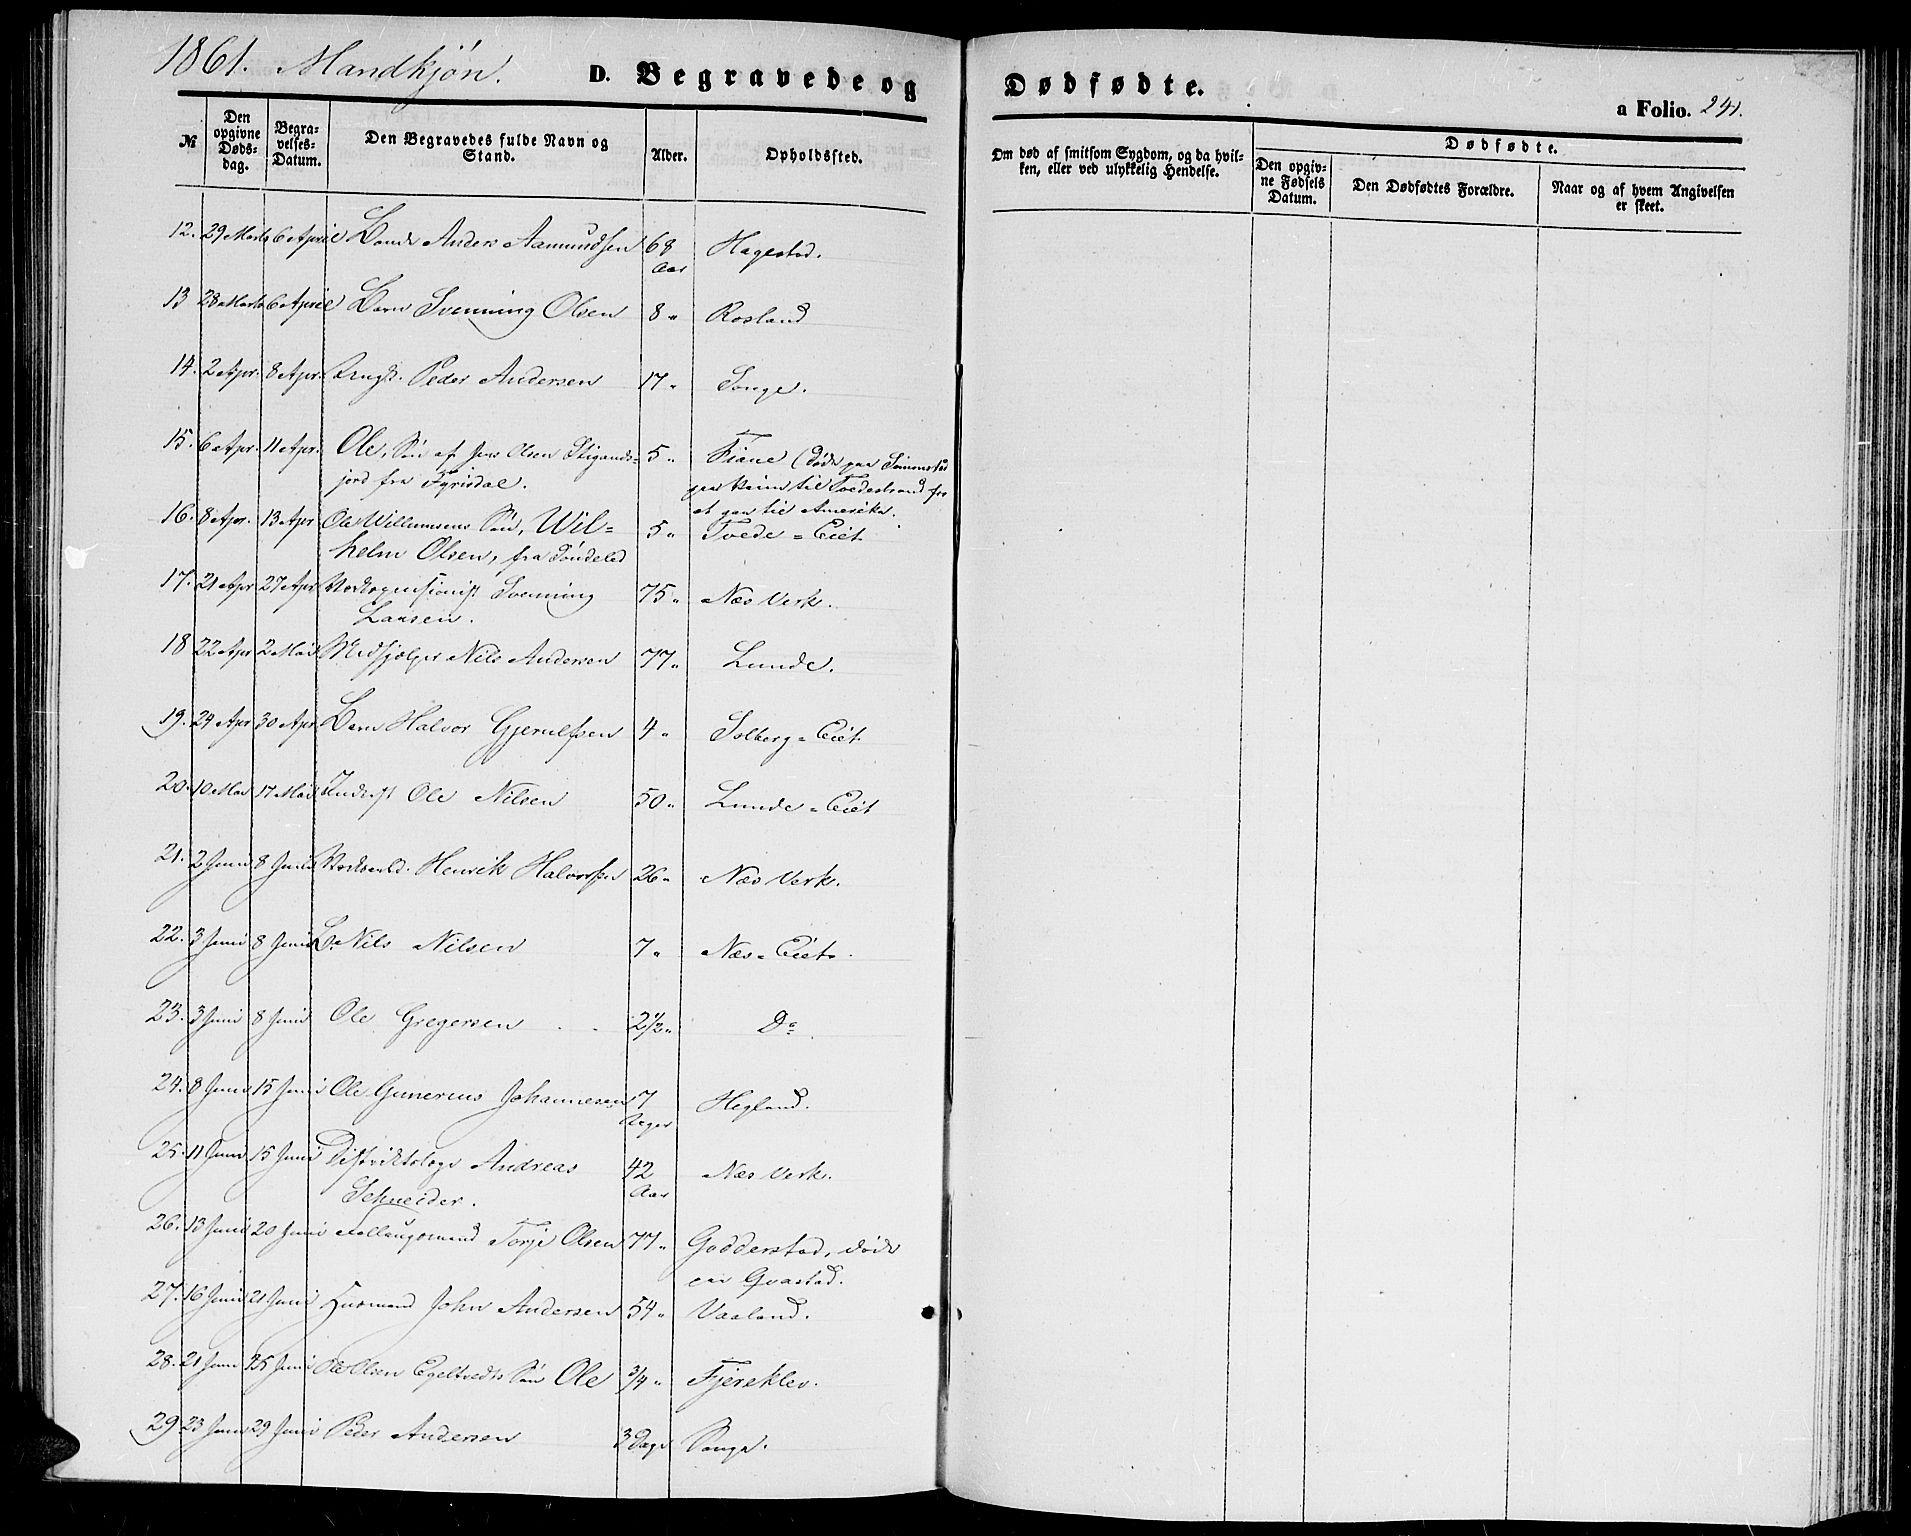 1861. Mandkjøn.
D. Begravede og Dødfødte.
a Folio. 241.
№
Den opgivne Døds-dag.
Begra-velses-Datum.
Den Begravedes fulde Navn og Stand.
Alder.
Opholdssted.
Om død af smitsom Sygdom, og da hvil-
ken, eller ved ulykkelig Hendelse.
Dødfødte.
Den opgiv-
ne Fødsels
Datum.
Den Dødfødtes Forældre.
Naar og af hvem Angivelsen
er skeet.
12. 29 Marts 6 April Anders Aamundsen 68 Aar Hagestad.
13 28 Marts 6 April Barn Svenning Olsen 8 " Rosland
14. 2 Apr. 8 Apr. Yngl. Peder Andersen 17 " Songe.
15. 6 Apr. 11 Apr. Ole, Søn af Jens Olsen Stigands- 5 " Fiane (døde paa Simonstad
jord fra Fyrisdal. paa Reisen til Tvedestrand for
at gaa til Amerika.
16. 8 Apr. 13 Apr Ole Willumsens Søn, Wil= 5 " Tvede = Eiet
helm Olsen, fra Søndeled
17. 21 Apr 27 Apr Verkspensionist Svenning 75 " Næs Verk.
Larsen.
18 22 Apr 2 Mai Medhjælper Nils Andersen 77 " Lunde.
19. 24 Apr 30 Apr. Barn Halvor Gjerulfsen 4 " Solberg = Eiet
20. 10 Mai 17 Mai Inderst Ole Nilsen 50 " Lunde = Eiet
21. 2 Juni 8 Juni Verksarbd. Henrik Halvorsen 26 " Næs Verk.
22. 3 Juni 8 Juni B. Nils Nilsen 7 " Næs = Eiet.
23. 3 Juni 8 Juni Ole Gregersen 2 1/2 " Do
24. 8 Juni 15 Juni Ole Gunerius Johannesen 7 Uger Hegland.
25. 11 Juni 15 Juni Distriktslæge Andreas 42 Aar Næs Verk.
Schneider.
26. 13 Juni 20 Juni Follaugsmand Torje Olsen 77 " Godderstad, døde
paa Gvastad.
27. 16 Juni 21 Juni Husmand John Andersen 54 " Vaaland.
28. 21 Juni 25 Juni Ole Olsen Egeltvedts Søn Ole 3/4 " Fjereklev.
29 23 Juni 29 Juni Peder Andersen 3 Dage Songe.